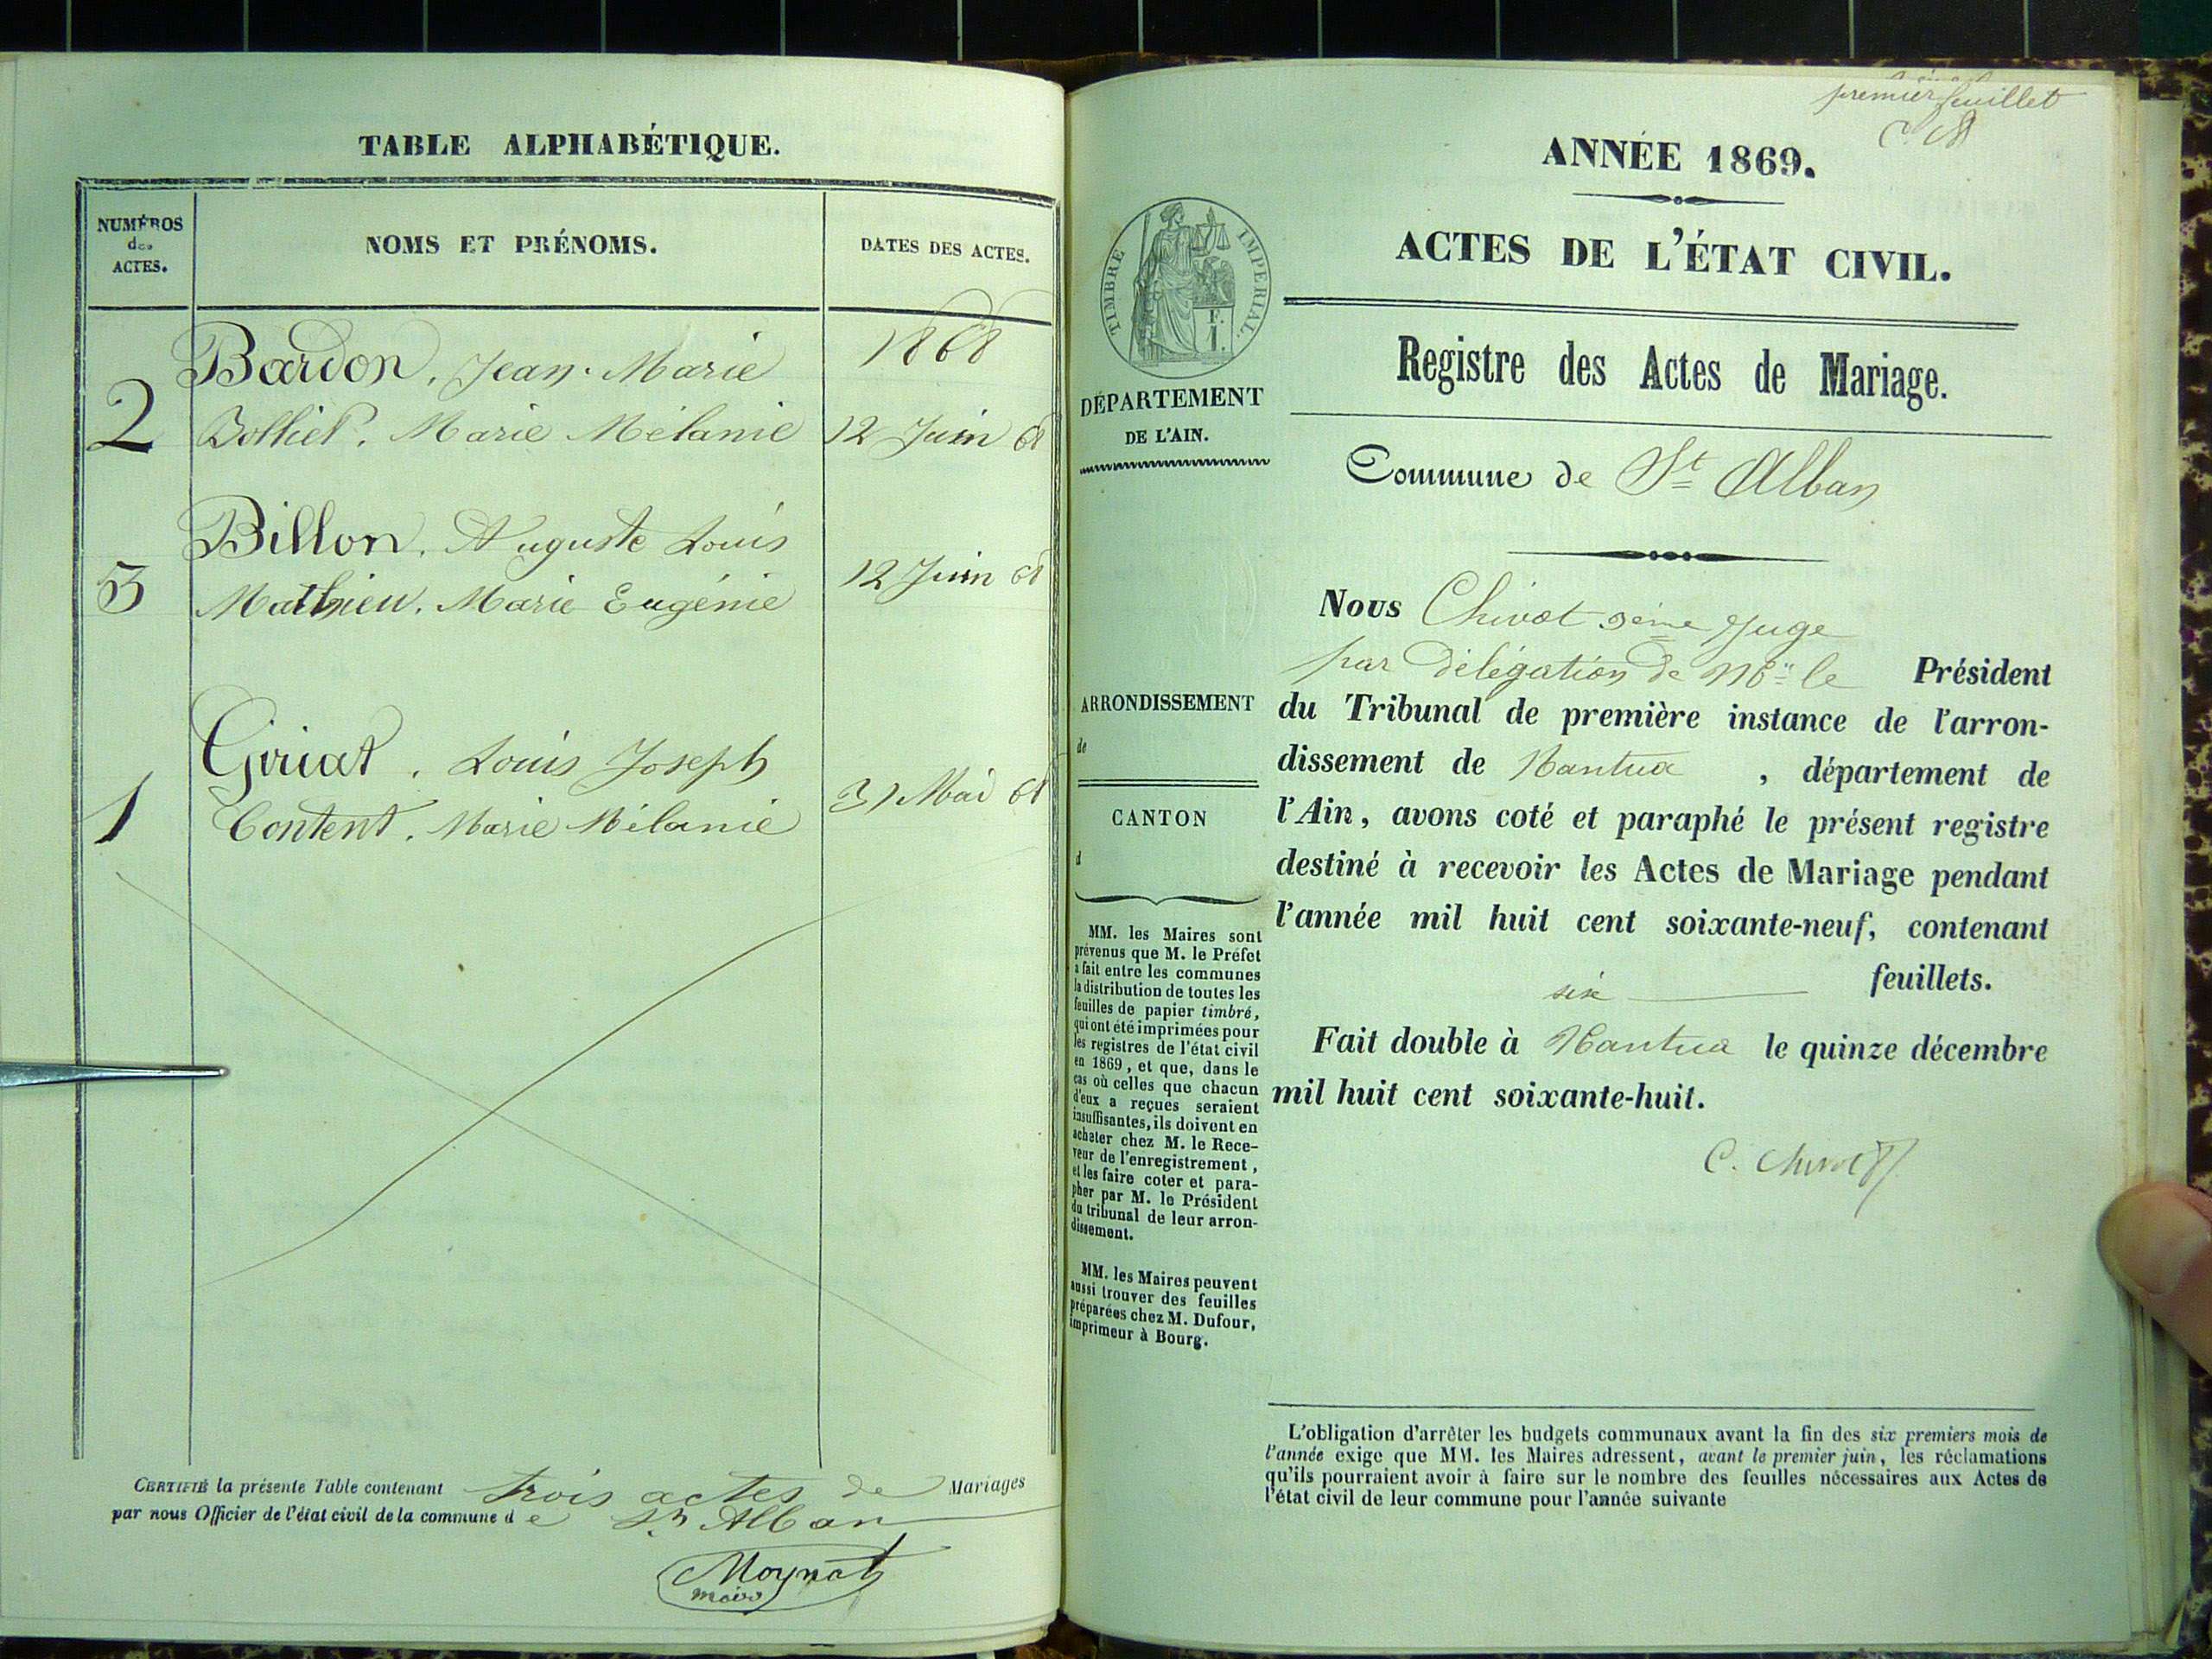 TABLE ALPHABÉTIQUE.
NUMÉROS
des
ACTES.
NOMS ET PRÉNOMS.
DATES DES ACTES.
1868
Bardon, Jean-Marie
2
Bolliet, Marie Mélanie
12 Juin 68
Billon, Auguste Louis
3
12 Juin 68
Mathieu, Marie Eugénie
Giriat, Louis Joseph
1
31 Mai 68
Content, Marie Mélanie
CERTIFIÉ la présente Table contenant trois actes de Mariages
par nous Officier de l'état civil de la commune de St Alban
Moynat
maire
premier feuillet
ANNÉE 1869.
ACTES DE L'ÉTAT CIVIL.
TIMBRE IMPÉRIAL.
F.
1.
DÉPARTEMENT
DE L'AIN.
Registre des Actes de Mariage.
Commune de St Alban
ARRONDISSEMENT
de
CANTON
d
MM. les Maires sont
prévenus que M. le Préfet
a fait entre les communes
la distribution de toutes les
feuilles de papier timbré,
qui ont été imprimées pour
les registres de l'état civil
en 1869, et que, dans le
cas où celles que chacun
d'eux a reçues seraient
insuffisantes, ils doivent en
acheter chez M. le Rece-
veur de l'enregistrement,
et les faire coter et para-
pher par M. le Président
du tribunal de leur arron-
dissement.
MM. les Maires peuvent
aussi trouver des feuilles
préparées chez M. Dufour,
imprimeur à Bourg.
Nous Chivot 3ème Juge
par délégation de Mr le Président
du Tribunal de première instance de l'arron-
dissement de Nantua, département de
l'Ain, avons coté et paraphé le présent registre
destiné à recevoir les Actes de Mariage pendant
l'année mil huit cent soixante-neuf, contenant
six feuillets.
Fait double à Nantua le quinze décembre
mil huit cent soixante-huit.
C. Chivot
L'obligation d'arrêter les budgets communaux avant la fin des six premiers mois de
l'année exige que MM. les Maires adressent, avant le premier juin, les réclamations
qu'ils pourraient avoir à faire sur le nombre des feuilles nécessaires aux Actes de
l'état civil de leur commune pour l'année suivante